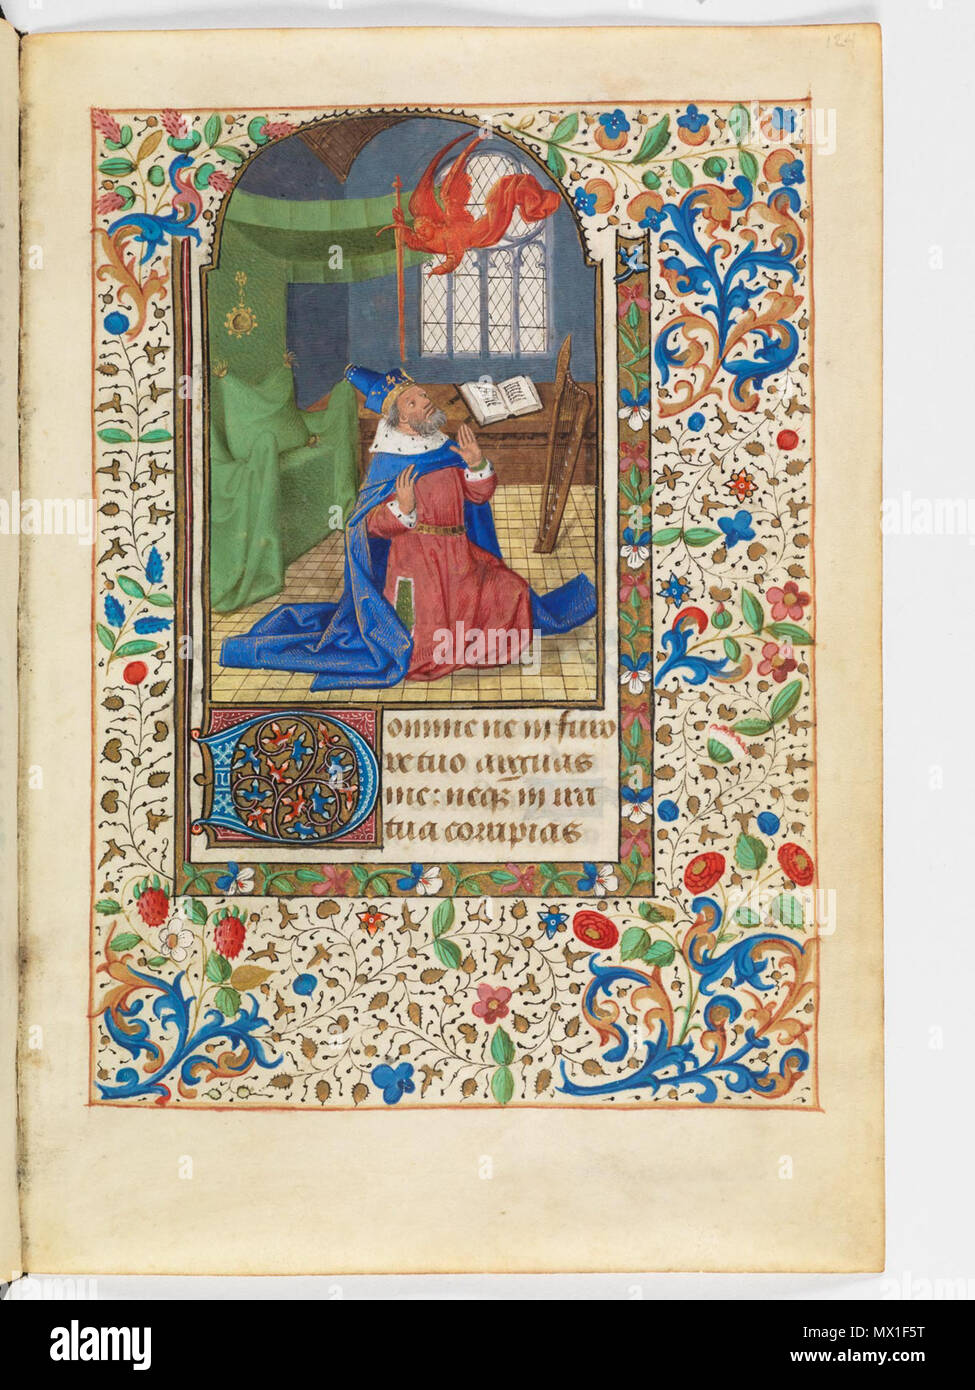 124
Domine ne in furo
re tuo arguas
me: neq3 in ira
tua corripias
alamy
Image ID: MX1F5T
www.alamy.com